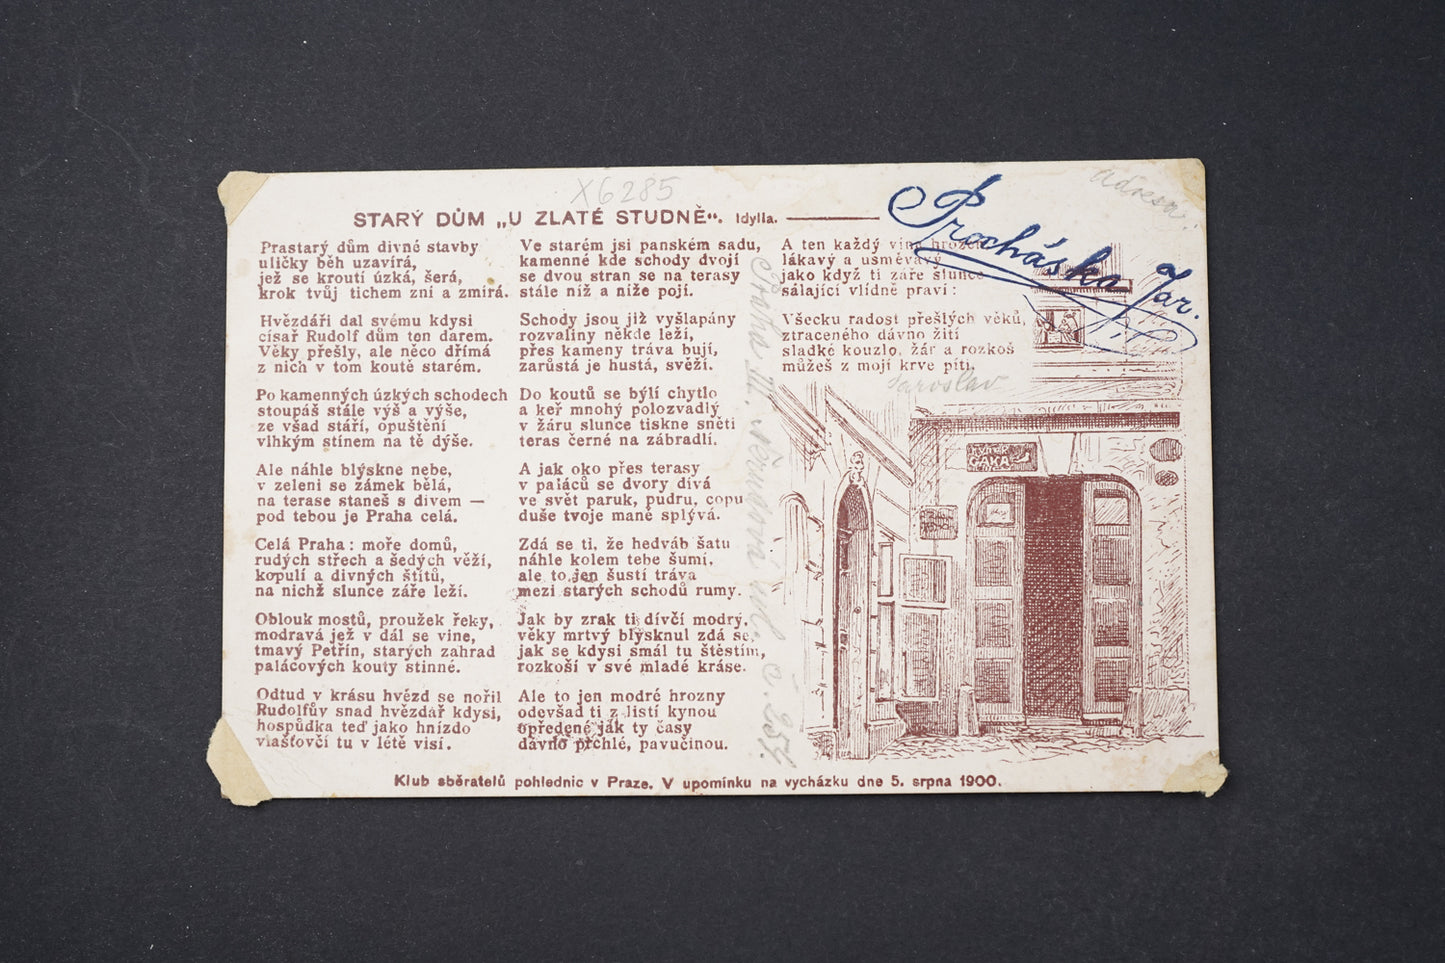 X6285
adresa:
STARÝ DŮM „U ZLATÉ STUDNĚ“. Idylla.
Procháska Jar.
Prastarý dům divné stavby
uličky běh uzavírá,
jež se kroutí úzká, šerá,
krok tvůj tichem zní a zmírá.
Hvězdáři dal svému kdysi
císař Rudolf dům ten darem.
Věky přešly, ale něco dřímá
z nich v tom koutě starém.
Po kamenných úzkých schodech
stoupáš stále výš a výše,
ze všad stáří, opuštění
vlhkým stínem na tě dýše.
Ale náhle blýskne nebe,
v zeleni se zámek bělá,
na terase staneš s divem —
pod tebou je Praha celá.
Celá Praha: moře domů,
rudých střech a šedých věží,
kopulí a divných štítů,
na nichž slunce záře leží.
Oblouk mostů, proužek řeky,
modravá jež v dál se vine,
tmavý Petřín, starých zahrad
palácových kouty stinné.
Odtud v krásu hvězd se nořil
Rudolfův snad hvězdář kdysi,
hospůdka teď jako hnízdo
vlašťovčí tu v létě visí.
Ve starém jsi panském sadu,
kamenné kde schody dvojí
se dvou stran se na terasy
stále níž a níže pojí.
Schody jsou již vyšlapány
rozvaliny někde leží,
přes kameny tráva bují,
zarůstá je hustá, svěží.
Do koutů se býlí chytlo
a keř mnohý polozvadlý
v žáru slunce tiskne snětí
teras černé na zábradlí.
A jak oko přes terasy
v paláců se dvory dívá
ve svět paruk, pudru, copu
duše tvoje maně splývá.
Zdá se ti, že hedváb šatu
náhle kolem tebe šumí,
ale to jen šustí tráva
mezi starých schodů rumy.
Jak by zrak ti dívčí modrý,
věky mrtvý blýsknul zdá se,
jak se kdysi smál tu štěstím,
rozkoší v své mladé kráse.
Ale to jen modré hrozny
odevšad ti z listí kynou
opředené jak ty časy
dávno prchlé, pavučinou.
A ten každý vína hrozen
lákavý a usměvavý
jako když ti záře slunce
sálající vlídně praví:
Všecku radost přešlých věků,
ztraceného dávno žití
sladké kouzlo, žár a rozkoš
můžeš z mojí krve píti.
Jaroslav
Praha III. ul. č. 257.
Klub sběratelů pohlednic v Praze. V upomínku na vycházku dne 5. srpna 1900.